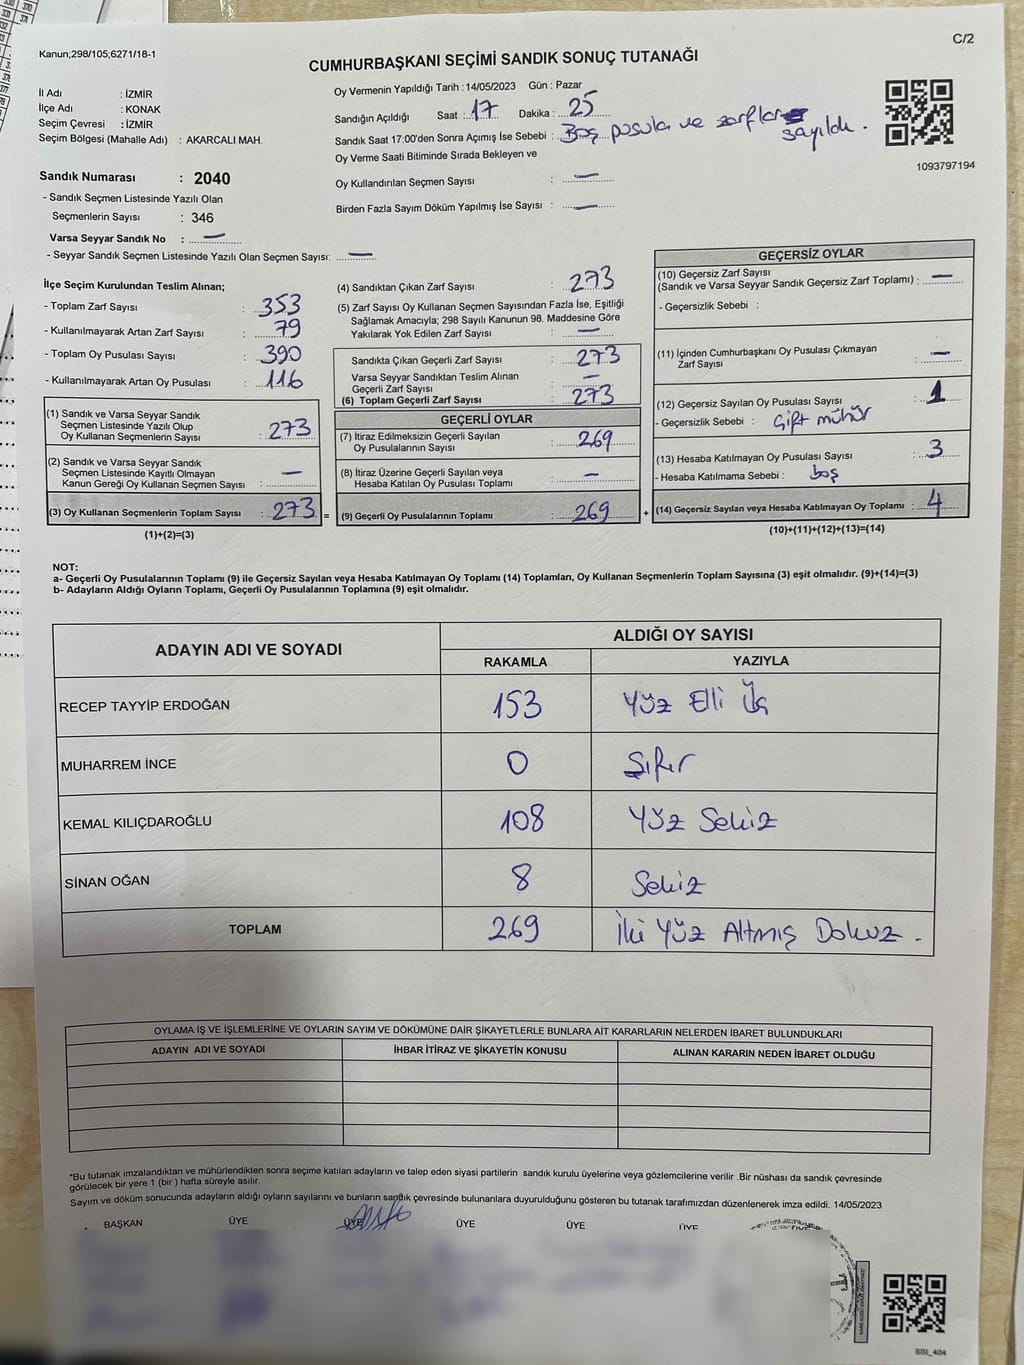 Kanun;298/105;6271/18-1
C/2
CUMHURBAŞKANI SEÇİMİ SANDIK SONUÇ TUTANAĞI
İl Adı : İZMİR
İlçe Adı : KONAK
Seçim Çevresi : İZMİR
Seçim Bölgesi (Mahalle Adı) : AKARCALI MAH.
Sandık Numarası : 2040
- Sandık Seçmen Listesinde Yazılı Olan
Seçmenlerin Sayısı : 346
Varsa Seyyar Sandık No : —
- Seyyar Sandık Seçmen Listesinde Yazılı Olan Seçmen Sayısı: —
Oy Vermenin Yapıldığı Tarih : 14/05/2023 Gün : Pazar
Sandığın Açıldığı Saat : 17 Dakika : 25
Sandık Saat 17:00'den Sonra Açımış İse Sebebi : Boş pusula ve zarflar sayıldı.
Oy Verme Saati Bitiminde Sırada Bekleyen ve
Oy Kullandırılan Seçmen Sayısı : —
Birden Fazla Sayım Döküm Yapılmış İse Sayısı : —
1093797194
İlçe Seçim Kurulundan Teslim Alınan;
- Toplam Zarf Sayısı : 353
- Kullanılmayarak Artan Zarf Sayısı : 79
- Toplam Oy Pusulası Sayısı : 390
- Kullanılmayarak Artan Oy Pusulası : 116
(1) Sandık ve Varsa Seyyar Sandık
Seçmen Listesinde Yazılı Olup
Oy Kullanan Seçmenlerin Sayısı : 273
(2) Sandık ve Varsa Seyyar Sandık
Seçmen Listesinde Kayıtlı Olmayan
Kanun Gereği Oy Kullanan Seçmen Sayısı : —
(3) Oy Kullanan Seçmenlerin Toplam Sayısı : 273 =
(1)+(2)=(3)
(4) Sandıktan Çıkan Zarf Sayısı : 273
(5) Zarf Sayısı Oy Kullanan Seçmen Sayısından Fazla İse, Eşitliği
Sağlamak Amacıyla; 298 Sayılı Kanunun 98. Maddesine Göre
Yakılarak Yok Edilen Zarf Sayısı : —
Sandıkta Çıkan Geçerli Zarf Sayısı : 273
Varsa Seyyar Sandıktan Teslim Alınan
Geçerli Zarf Sayısı : —
(6) Toplam Geçerli Zarf Sayısı : 273
GEÇERLİ OYLAR
(7) İtiraz Edilmeksizin Geçerli Sayılan
Oy Pusulalarının Sayısı : 269
(8) İtiraz Üzerine Geçerli Sayılan veya
Hesaba Katılan Oy Pusulası Toplamı : —
(9) Geçerli Oy Pusulalarının Toplamı : 269 +
GEÇERSİZ OYLAR
(10) Geçersiz Zarf Sayısı
(Sandık ve Varsa Seyyar Sandık Geçersiz Zarf Toplamı) : —
- Geçersizlik Sebebi :
(11) İçinden Cumhurbaşkanı Oy Pusulası Çıkmayan
Zarf Sayısı : —
(12) Geçersiz Sayılan Oy Pusulası Sayısı : 1
- Geçersizlik Sebebi : Çift mühür
(13) Hesaba Katılmayan Oy Pusulası Sayısı : 3
- Hesaba Katılmama Sebebi : boş
(14) Geçersiz Sayılan veya Hesaba Katılmayan Oy Toplamı : 4
(10)+(11)+(12)+(13)=(14)
NOT:
a- Geçerli Oy Pusulalarının Toplamı (9) ile Geçersiz Sayılan veya Hesaba Katılmayan Oy Toplamı (14) Toplamları, Oy Kullanan Seçmenlerin Toplam Sayısına (3) eşit olmalıdır. (9)+(14)=(3)
b- Adayların Aldığı Oyların Toplamı, Geçerli Oy Pusulalarının Toplamına (9) eşit olmalıdır.
ADAYIN ADI VE SOYADI
ALDIĞI OY SAYISI
RAKAMLA YAZIYLA
RECEP TAYYİP ERDOĞAN 153 Yüz Elli Üç
MUHARREM İNCE 0 Sıfır
KEMAL KILIÇDAROĞLU 108 Yüz Sekiz
SİNAN OĞAN 8 Sekiz
TOPLAM 269 İki Yüz Altmış Dokuz.
OYLAMA İŞ VE İŞLEMLERİNE VE OYLARIN SAYIM VE DÖKÜMÜNE DAİR ŞİKAYETLERLE BUNLARA AİT KARARLARIN NELERDEN İBARET BULUNDUKLARI
ADAYIN ADI VE SOYADI İHBAR İTİRAZ VE ŞİKAYETİN KONUSU ALINAN KARARIN NEDEN İBARET OLDUĞU
*Bu tutanak imzalandıktan ve mühürlendikten sonra seçime katılan adayların ve talep eden siyasi partilerin sandık kurulu üyelerine veya gözlemcilerine verilir .Bir nüshası da sandık çevresinde
görülecek bir yere 1 (bir ) hafta süreyle asılır.
Sayım ve döküm sonucunda adayların aldığı oyların sayılarını ve bunların sandık çevresinde bulunanlara duyurulduğunu gösteren bu tutanak tarafımızdan düzenlenerek imza edildi. 14/05/2023
BAŞKAN ÜYE ÜYE ÜYE ÜYE ÜYE